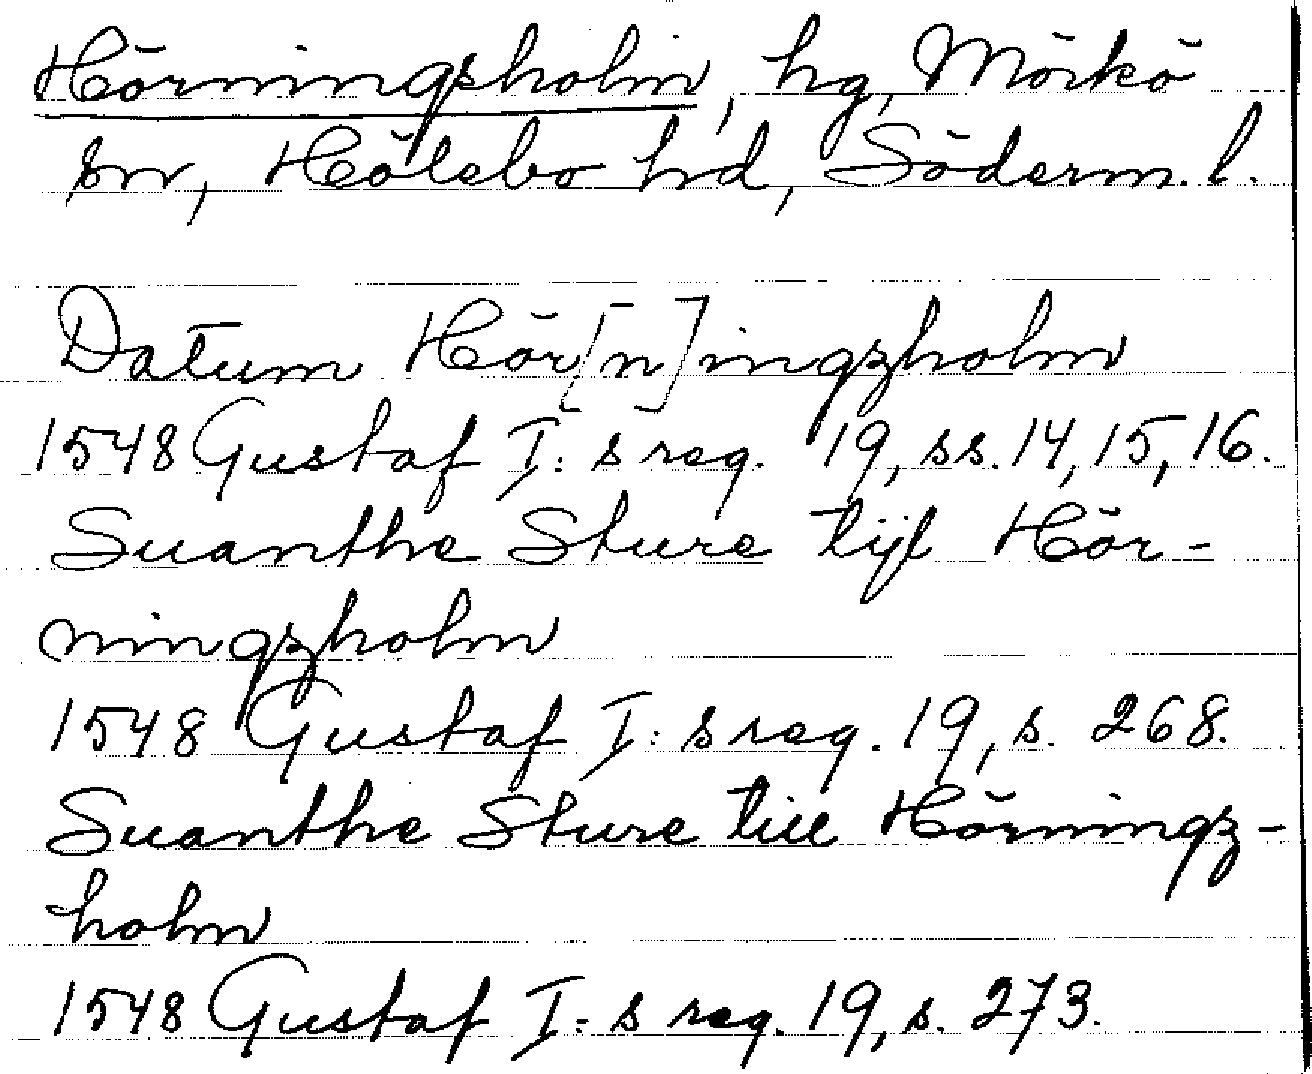 Hörningsholm, hg, Mörkö
sn, Hölebo hd, Söderm. l.
Datum Hör[n]ingzholm
1548 Gustaf I:s reg. 19, ss. 14, 15, 16.
Suanthe Sture tijl Hör-
ningzholm
1548 Gustaf I:s reg. 19, s. 268.
Suanthe Sture till Hörningz-
holm
1548 Gustaf I:s reg. 19, s. 273.